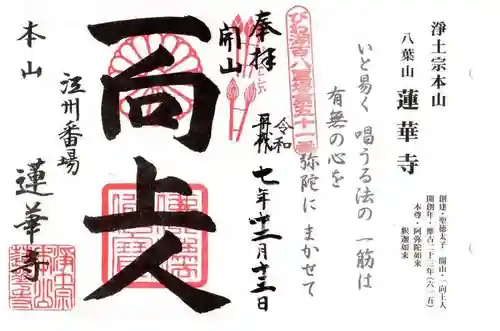 浄土宗本山
八葉山 蓮華寺
創建・聖徳太子 開山・一向上人
開創年・推古二十三年(六一五)
本尊・阿弥陀如来
釈迦如来
いと易く 唱うる法の 一筋は
有無の心を
弥陀に まかせて
びわ湖百八霊場第五十一番
奉拝
開山
一向上人
令和
再代
七年十二月十三日
本山
江州番場
蓮華寺